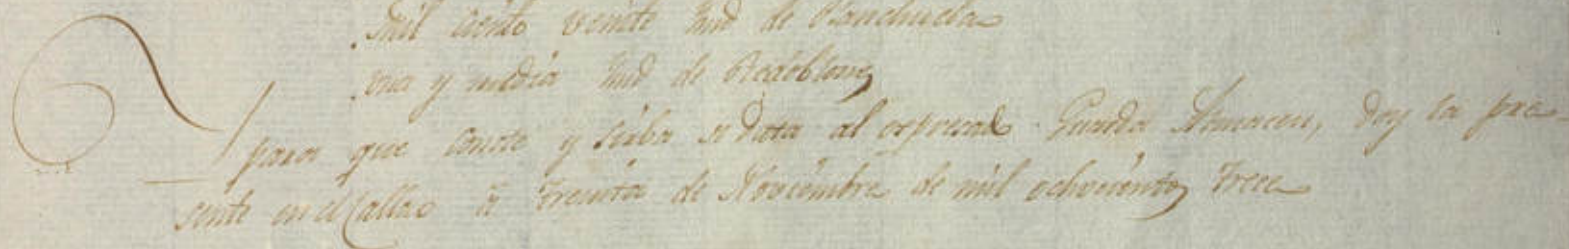 Mil ciento veinte Und de Planchuela
Una y media Und de Redoblones
para que conste y sirba de Data al expresado Guarda Almacen, doy la pre-
sente en el Callao á treinta de Noviembre de mil ochocientos trece